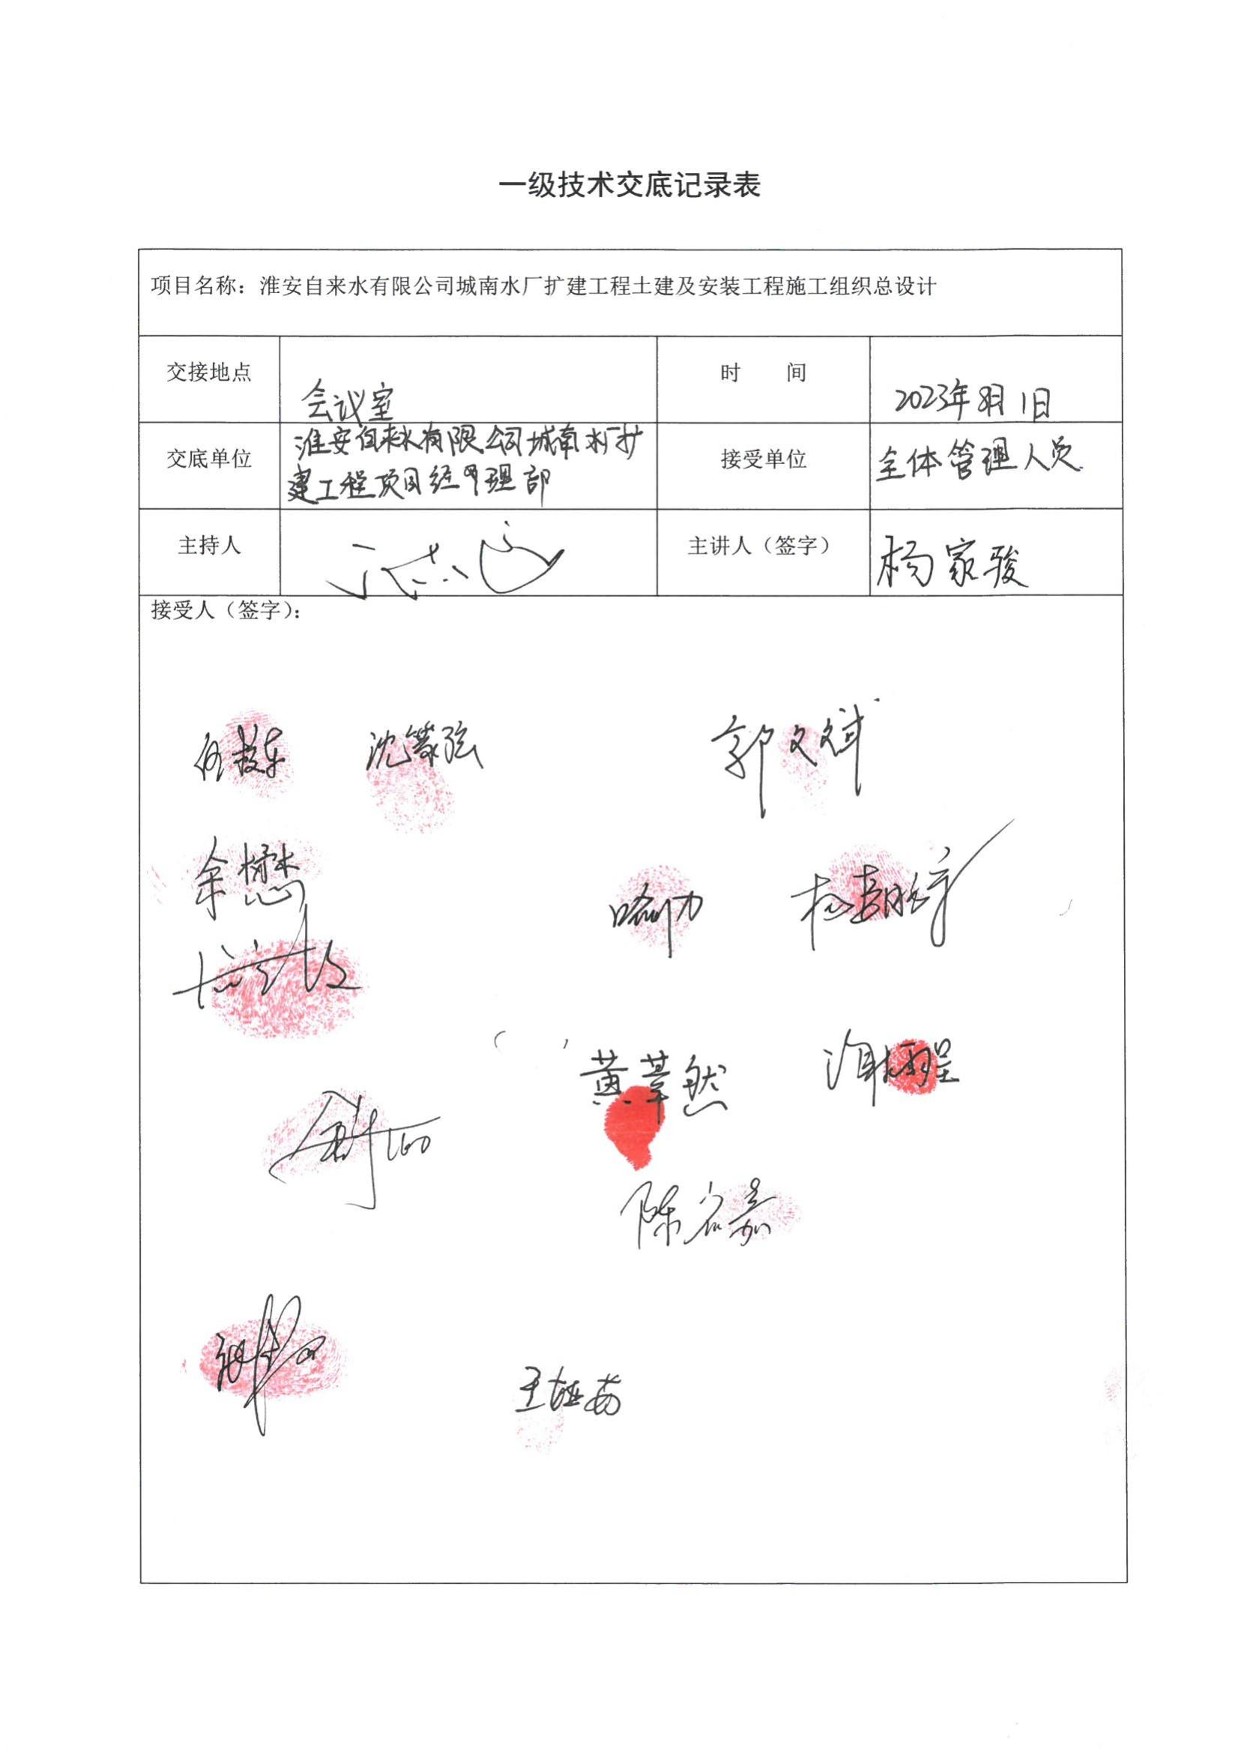 一级技术交底记录表
项目名称：淮安自来水有限公司城南水厂扩建工程土建及安装工程施工组织总设计
交接地点
会议室
时 间
2023年8月1日
交底单位
淮安自来水有限公司城南水厂扩
建工程项目经理部
接受单位
全体管理人员
主持人
主讲人（签字）
杨家骏
接受人（签字）：
沈
郭文斌
余懋
喻力
黄苇然
陈嘉
王娅茹